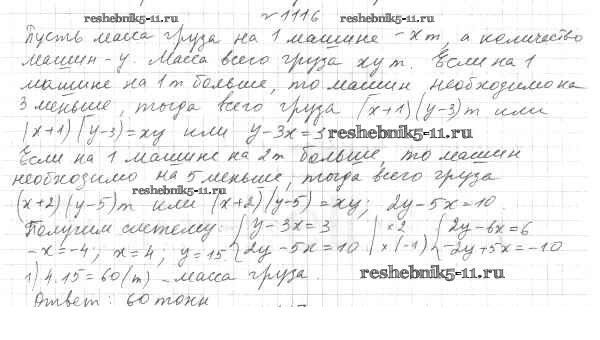 № 1116 reshebnik5-11.ru
Пусть масса груза на 1 машине - x т, а количество
машин - y. Масса всего груза xy т. Если на 1
машине на 1т больше, то машин необходимо на
3 меньше, тогда всего груза (x+1)(y-3)т или
(x+1)(y-3)=xy или y-3x=3 reshebnik5-11.ru
Если на 1 машине на 2т больше, то машин
необходимо на 5 меньше, тогда всего груза
reshebnik5-11.ru
(x+2)(y-5)т или (x+2)(y-5)=xy; 2y-5x=10.
Получим систему: {y-3x=3 |×2 {2y-6x=6
-x=-4; x=4; y=15 {2y-5x=10 |×(-1) {-2y+5x=-10
1) 4·15=60(т) - масса груза. reshebnik5-11.ru
Ответ: 60 тонн